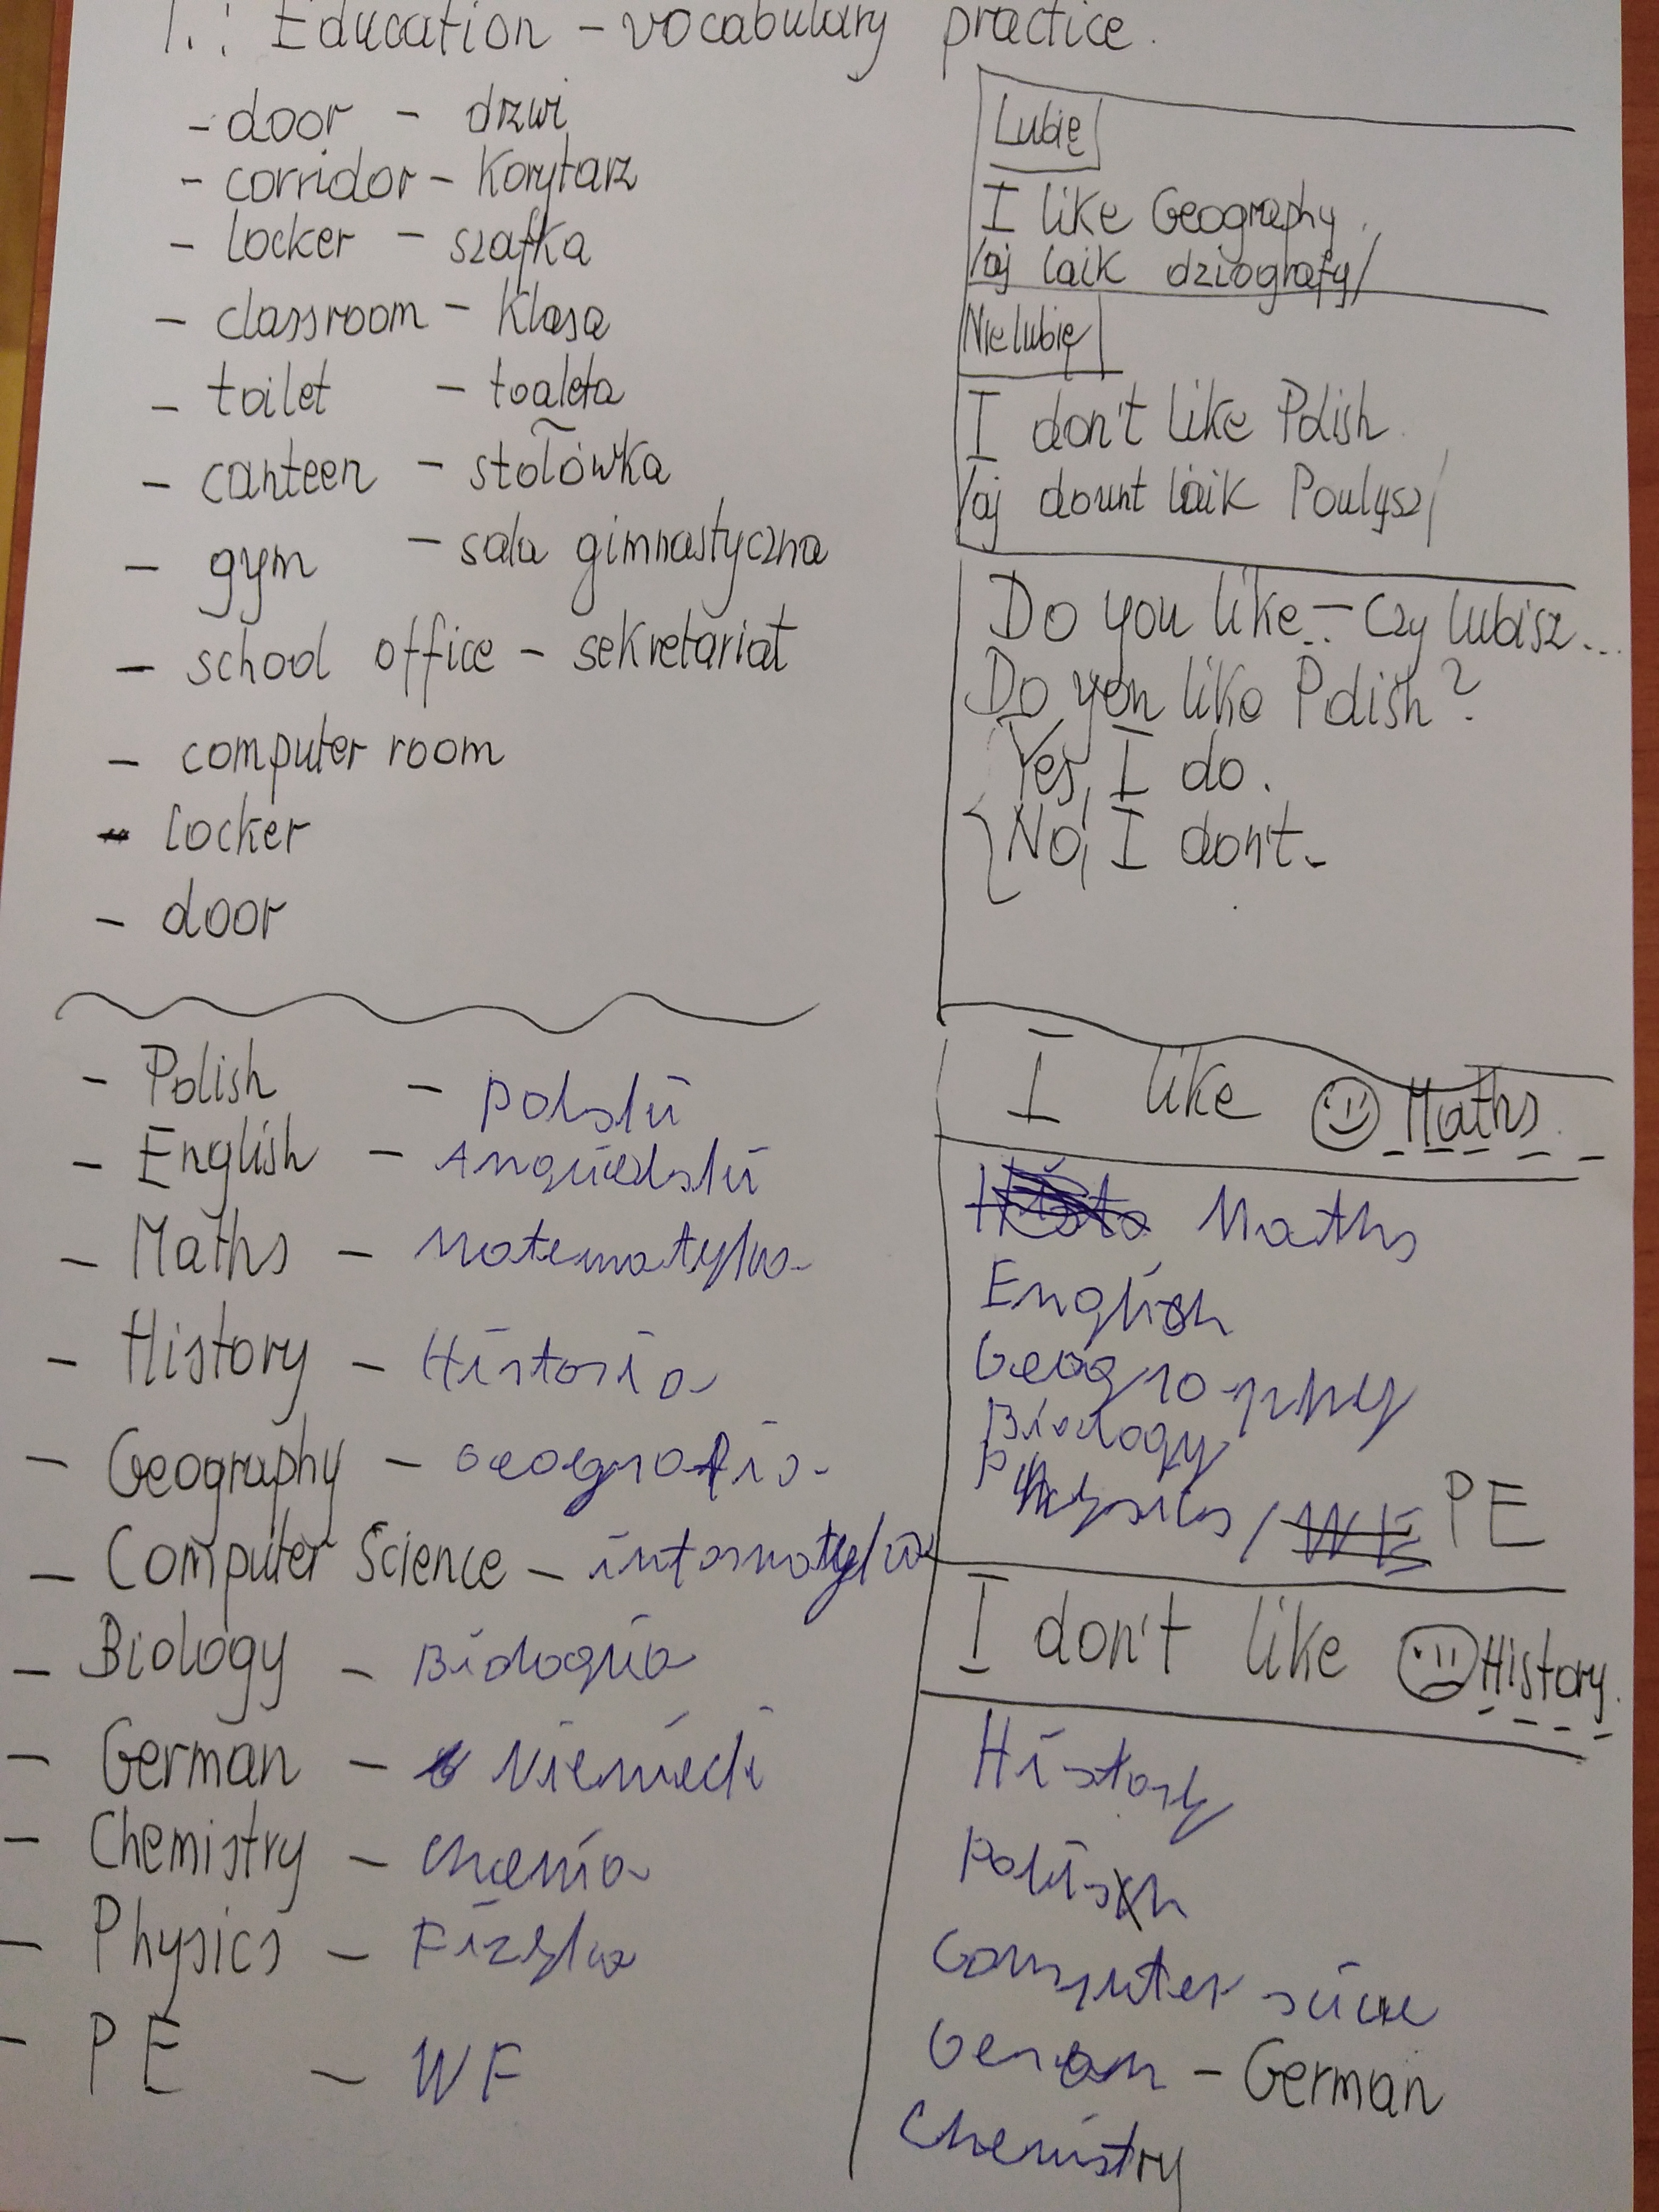 T.: Education - vocabulary practice.
- door - drzwi
- corridor - korytarz
- locker - szafka
- classroom - klasa
- toilet - toaleta
- canteen - stołówka
- gym - sala gimnastyczna
- school office - sekretariat
- computer room
- locker
- door
Lubię
I like Geography.
/aj laik dziografy/
Nie lubię
I don't like Polish.
/aj dount laik Poulysz/
Do you like... - Czy lubisz...
Do you like Polish?
Yes, I do.
No, I don't.
- Polish - polski
- English - Angielski
- Maths - Matematyka
- History - Historia
- Geography - Geografia
- Computer Science - informatyka
- Biology - Biologia
- German - Niemiecki
- Chemistry - chemia
- Physics - Fizyka
- PE - WF
I like Maths.
Maths
English
Geography
Biology
Physics / PE
I don't like History.
History
Polish
Computer
German - German
Chemistry